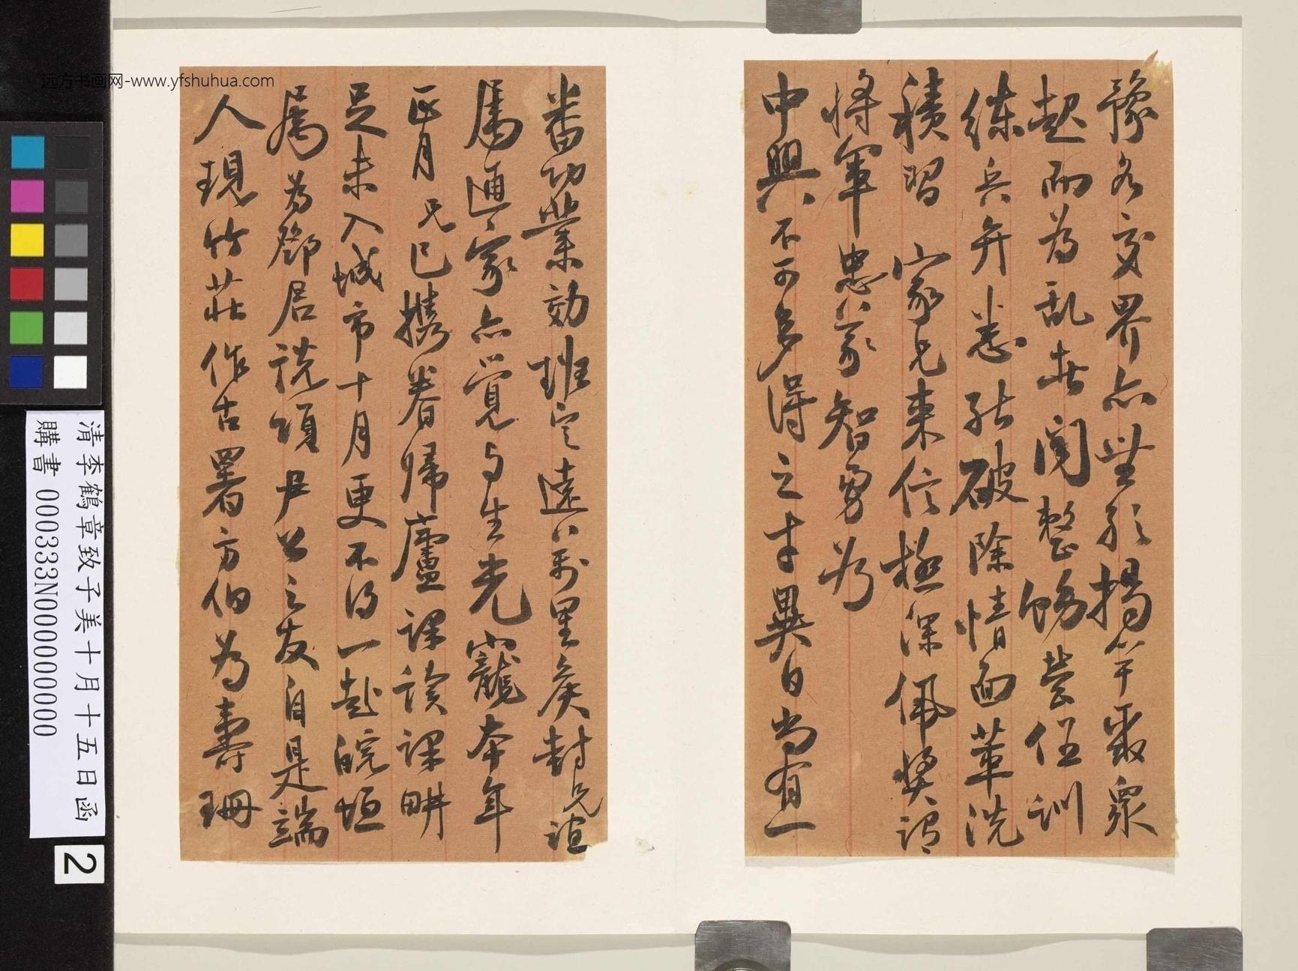 远方书画网-www.yfshuhua.com
豫各交界亦無形揭竿聚眾
起而為乱者聞整飭營伍訓
练兵弁悉能破除情面革洗
積習 家兄来信極深佩獎謂
將軍忠義智勇为
中興不可多得之才異日當有一
番功業効班定遠萬里矦封兄誼
属通家亦覺与生光寵本年
正月兄已携眷帰廬課讀課畊
足未入城市十月更不得一赴皖垣
属为鄧居説項尹公之友自是端
人現竹莊作古署方伯為壽珊
清李鶴章致子美十月十五日函
購書 000333N000000000
2